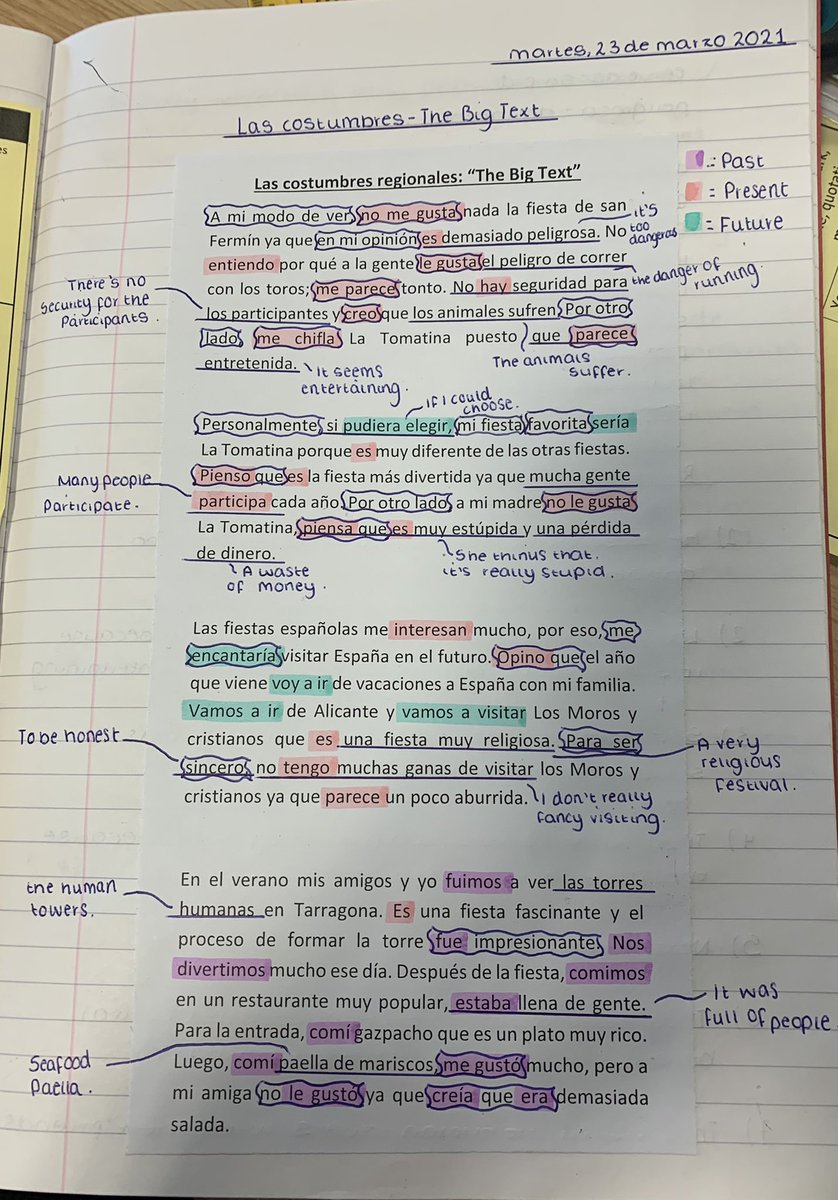 martes, 23 de marzo 2021
Las costumbres - The Big Text
Las costumbres regionales: "The Big Text"
: Past
= Present
= Future
A mi modo de ver no me gusta nada la fiesta de san
Fermín ya que en mi opinión es demasiado peligrosa. No
entiendo por qué a la gente le gusta el peligro de correr
con los toros; me parece tonto. No hay seguridad para
los participantes y creo que los animales sufren. Por otro
lado me chifla La Tomatina puesto que parece
entretenida.
it's
too
dangeras
the danger of
running.
There's no
security for the
Participants.
It seems
entertaining.
The animals
suffer.
if I could
choose.
Personalmente si pudiera elegir, mi fiesta favorita sería
La Tomatina porque es muy diferente de las otras fiestas.
Pienso que es la fiesta más divertida ya que mucha gente
participa cada año. Por otro lado a mi madre no le gusta
La Tomatina, piensa que es muy estúpida y una pérdida
de dinero.
Many people
Participate.
A waste
of money.
She thinus that
it's really stupid.
Las fiestas españolas me interesan mucho, por eso, me
encantaría visitar España en el futuro. Opino que el año
que viene voy a ir de vacaciones a España con mi familia.
Vamos a ir de Alicante y vamos a visitar Los Moros y
cristianos que es una fiesta muy religiosa. Para ser
sincero no tengo muchas ganas de visitar los Moros y
cristianos ya que parece un poco aburrida.
To be honest
A very
religious
Festival.
I don't really
fancy visiting.
En el verano mis amigos y yo fuimos a ver las torres
humanas en Tarragona. Es una fiesta fascinante y el
proceso de formar la torre fue impresionante. Nos
divertimos mucho ese día. Después de la fiesta, comimos
en un restaurante muy popular, estaba llena de gente.
Para la entrada, comí gazpacho que es un plato muy rico.
Luego, comí paella de mariscos, me gustó mucho, pero a
mi amiga no le gustó ya que creía que era demasiada
salada.
the human
towers.
It was
full of people
Seafood
Paella.